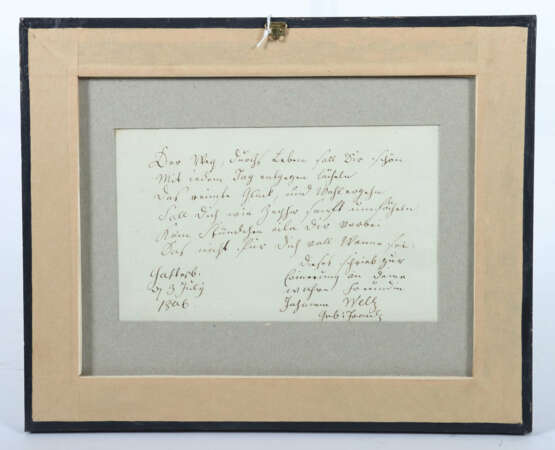 Der Weg durchs Leben soll Dir schön
Mit jedem Tag entgegen lächeln
Das reinste Glück, und Wohlergehn
Soll Dich wie Zephyr sanft umfächeln
Kein Stündchen eile Dir vorbei
Das nicht für Dich voll Wonne sei.
Dieses schrieb zur
Erinnerung an deine
wahre Freundin
Welz
geb:
d 3 July
1806